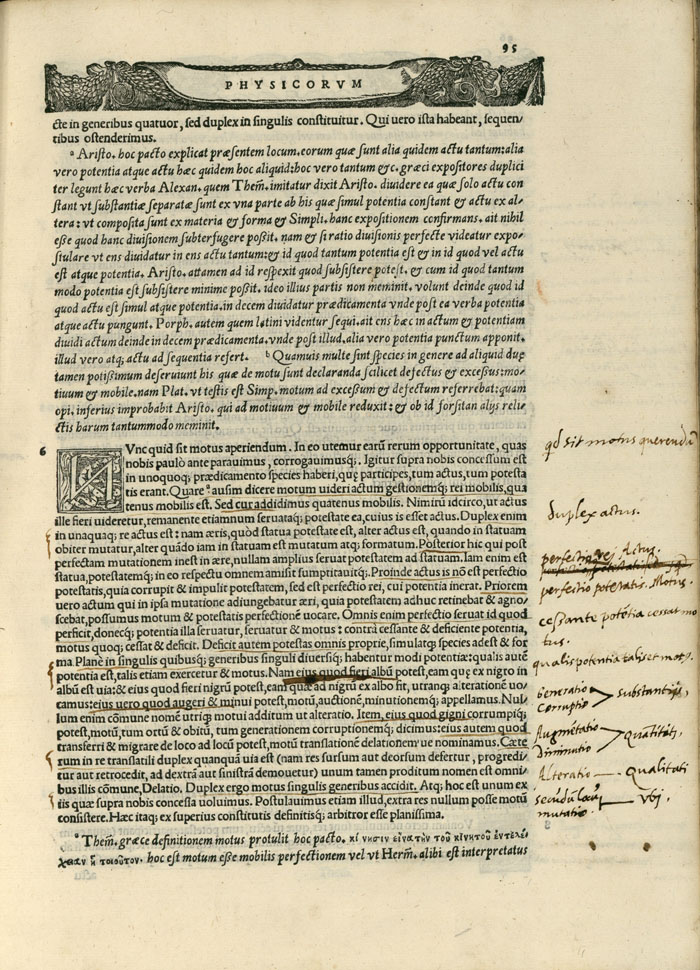 95
PHYSICORVM
cte in generibus quatuor, sed duplex in singulis constituitur. Qui uero ista habeant, sequen-
tibus ostenderimus.
a Aristo. hoc pacto explicat præsentem locum. eorum quæ sunt alia quidem actu tantum: alia
vero potentia atque actu hæc quidem hoc aliquid: hoc vero tantum & c. græci expositores duplici
ter legunt hæc verba Alexan. quem Them̃. imitatur dixit Aristo. diuidere ea quæ solo actu con
stant vt substantiæ separatæ sunt ex vna parte ab his quæ simul potentia constant & actu ex al-
tera: vt composita sunt ex materia & forma & Simpli. hanc expositionem confirmans. ait nihil
esse quod hanc diuisionem subterfugere possit. nam & si ratio diuisionis perfecte videatur expo-
stulare vt ens diuidatur in ens actu tantum: & id quod tantum potentia est & in id quod vel actu
est atque potentia. Aristo. attamen ad id respexit quod subsistere potest. & cum id quod tantum
modo potentia est subsistere minime possit. ideo illius partis non meminit. volunt deinde quod id
quod actu est simul atque potentia. in decem diuidatur prædicamenta vnde post ea verba potentia
atque actu pungunt. Porph. autem quem latini videntur sequi. ait ens hæc in actum & potentiam
diuidi actum deinde in decem prædicamenta. vnde post illud. alia vero potentia punctum apponit.
illud vero atq; actu ad sequentia refert. b Quamuis multe sint species in genere ad aliquid duę
tamen potissimum deseruiunt his quæ de motu sunt declaranda scilicet defectus & excessus: mo-
tiuum & mobile. nam Plat. vt testis est Simp. motum ad excessum & defectum referrebat: quam
opi. inferius improbabit Aristo. qui ad motiuum & mobile reduxit: & ob id forsitan alijs reli-
ctis harum tantummodo meminit.
6 NVnc quid sit motus aperiendum. In eo utemur earũ rerum opportunitate, quas
nobis paulò ante parauimus, corrogauimusq;. Igitur supra nobis concessum est
in unoquoq; prædicamento species haberi, quę participes, tum actus, tum potesta
tis erant. Quare a ausim dicere motum uideri actum gestionemq; rei mobilis, qua
tenus mobilis est. Sed cur addidimus quatenus mobilis. Nimirũ idcirco, ut actus
ille fieri uideretur, remanente etiamnum seruataq; potestate ea, cuius is esset actus. Duplex enim
in unaquaq; re actus est: nam æris, quòd statua potestate est, alter actus est, quando in statuam
obiter mutatur, alter quãdo iam in statuam est mutatum atq; formatum. Posterior hic qui post
perfectam mutationem inest in ære, nullam amplius seruat potestatem ad statuam. Iam enim est
statua, potestatemq; in eo respectu omnem amisit sumptitauitq;. Proinde actus is nõ est perfectio
potestatis, quia corrupit & impulit potestatem, sed est perfectio rei, cui potentia inerat. Priorem
uero actum qui in ipsa mutatione adiungebatur æri, quia potestatem adhuc retinebat & agno-
scebat, possumus motum & potestatis perfectionẽ uocare. Omnis enim perfectio seruat id quod
perficit, donecq; potentia illa seruatur, seruatur & motus: contrà cessante & deficiente potentia,
motus quoq; cessat & deficit. Deficit autem potestas omnis proprie, simulatq; species adest & for
ma Planè in singulis quibusq; generibus singuli diuersiq; habentur modi potentiæ: qualis autẽ
potentia est, talis etiam exercetur & motus. Nam eius quod fieri albũ potest, eam quę ex nigro in
albũ est uia: & eius quod fieri nigrũ potest, eam quæ ad nigrũ ex albo fit, utranq; alterationẽ uo-
camus: eius uero quod augeri & minui potest, motũ, auctionẽ, minutionemq; appellamus. Nul-
lum enim cõmune nomẽ utriq; motui additum ut alteratio. Item, eius quod gigni corrumpiq;
potest, motũ, tum ortũ & obitũ, tum generationem corruptionemq; dicimus: eius autem quod
transferri & migrare de loco ad locũ potest, motũ translationẽ delationemue nominamus. Cæte
rum in re translatili duplex quanquã uia est (nam res sursum aut deorsum defertur, progredi-
tur aut retrocedit, ad dextrã aut sinistrã demouetur) unum tamen proditum nomen est omni-
bus illis cõmune, Delatio. Duplex ergo motus singulis generibus accidit. Atq; hoc est unum ex
iis quæ supra nobis concessa uoluimus. Postulauimus etiam illud, extra res nullum posse motũ
consistere. Hæc itaq; ex superius constitutis definitisq; arbitror esse planissima.
a Them̃. græce definitionem motus protulit hoc pacto. κίνησιν εἶναι τὴν τοῦ κινητοῦ ἐντελέ-
χειαν ᾗ τοιοῦτον. hoc est motum esse mobilis perfectionem vel vt Herm̃. alibi est interpretatus
qd sit motus querendũ
duplex actus.
perfectio rei Actus.
perfectio potestatis. Motus.
cessante potẽtia cessat mo
tus.
qualis potentia talis et mot9.
Generatio
Corruptio
substantię,
Augmẽtatio
Diminutio
Quãtitati,
Alteratio — Qualitati
secũdũ locũ
mutatio.
Vbi,